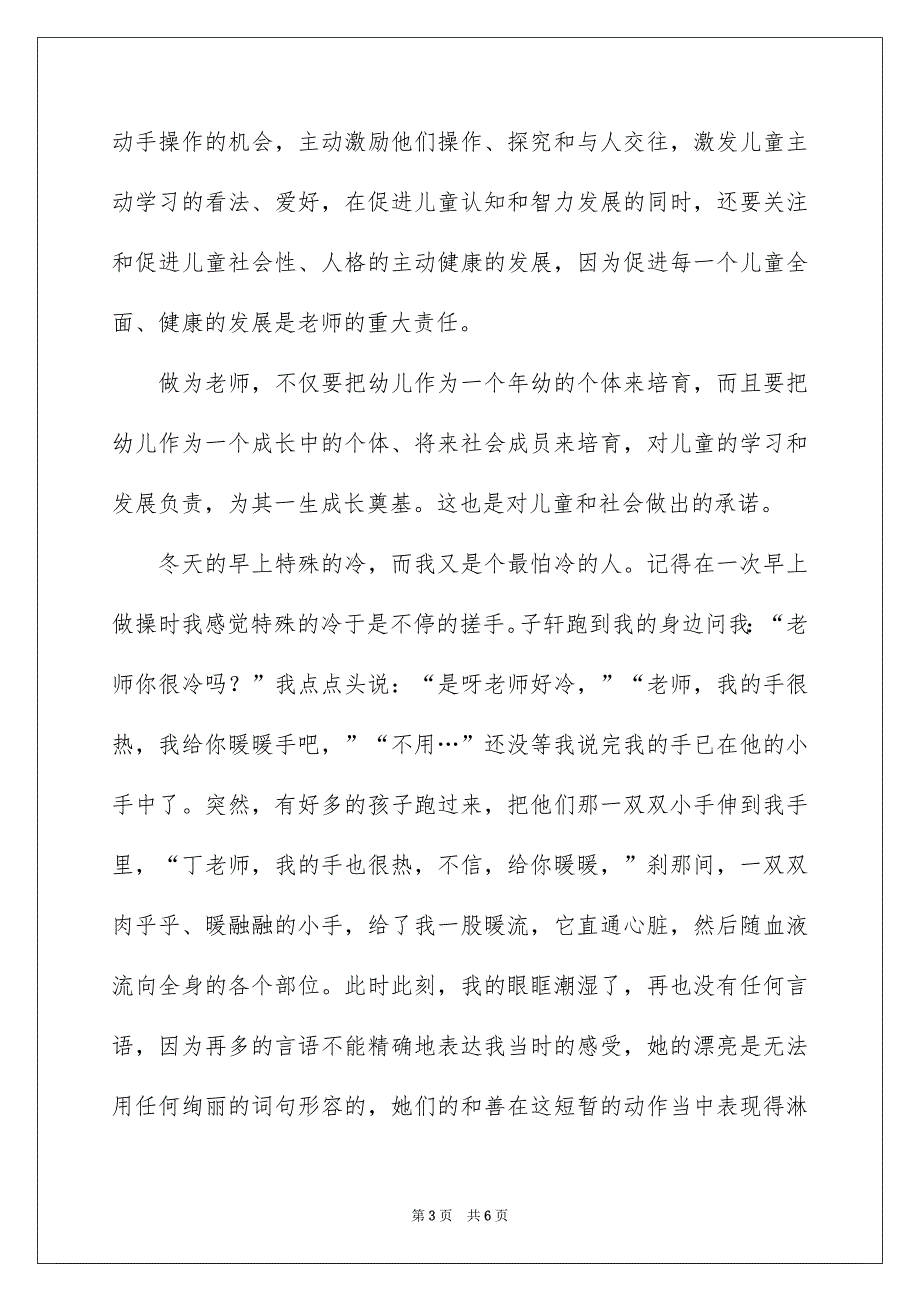 动手操作的机会，主动激励他们操作、探究和与人交往，激发儿童主
动学习的看法、爱好，在促进儿童认知和智力发展的同时，还要关注
和促进儿童社会性、人格的主动健康的发展，因为促进每一个儿童全
面、健康的发展是老师的重大责任。
做为老师，不仅要把幼儿作为一个年幼的个体来培育，而且要把
幼儿作为一个成长中的个体、将来社会成员来培育，对儿童的学习和
发展负责，为其一生成长奠基。这也是对儿童和社会做出的承诺。
冬天的早上特殊的冷，而我又是个最怕冷的人。记得在一次早上
做操时我感觉特殊的冷于是不停的搓手。子轩跑到我的身边问我：“老
师你很冷吗？”我点点头说：“是呀老师好冷，”“老师，我的手很
热，我给你暖暖手吧，”“不用…”还没等我说完我的手已在他的小
手中了。突然，有好多的孩子跑过来，把他们那一双双小手伸到我手
里，“丁老师，我的手也很热，不信，给你暖暖，”刹那间，一双双
肉乎乎、暖融融的小手，给了我一股暖流，它直通心脏，然后随血液
流向全身的各个部位。此时此刻，我的眼眶潮湿了，再也没有任何言
语，因为再多的言语不能精确地表达我当时的感受，她的漂亮是无法
用任何绚丽的词句形容的，她们的和善在这短暂的动作当中表现得淋
第 3 页 共 6 页